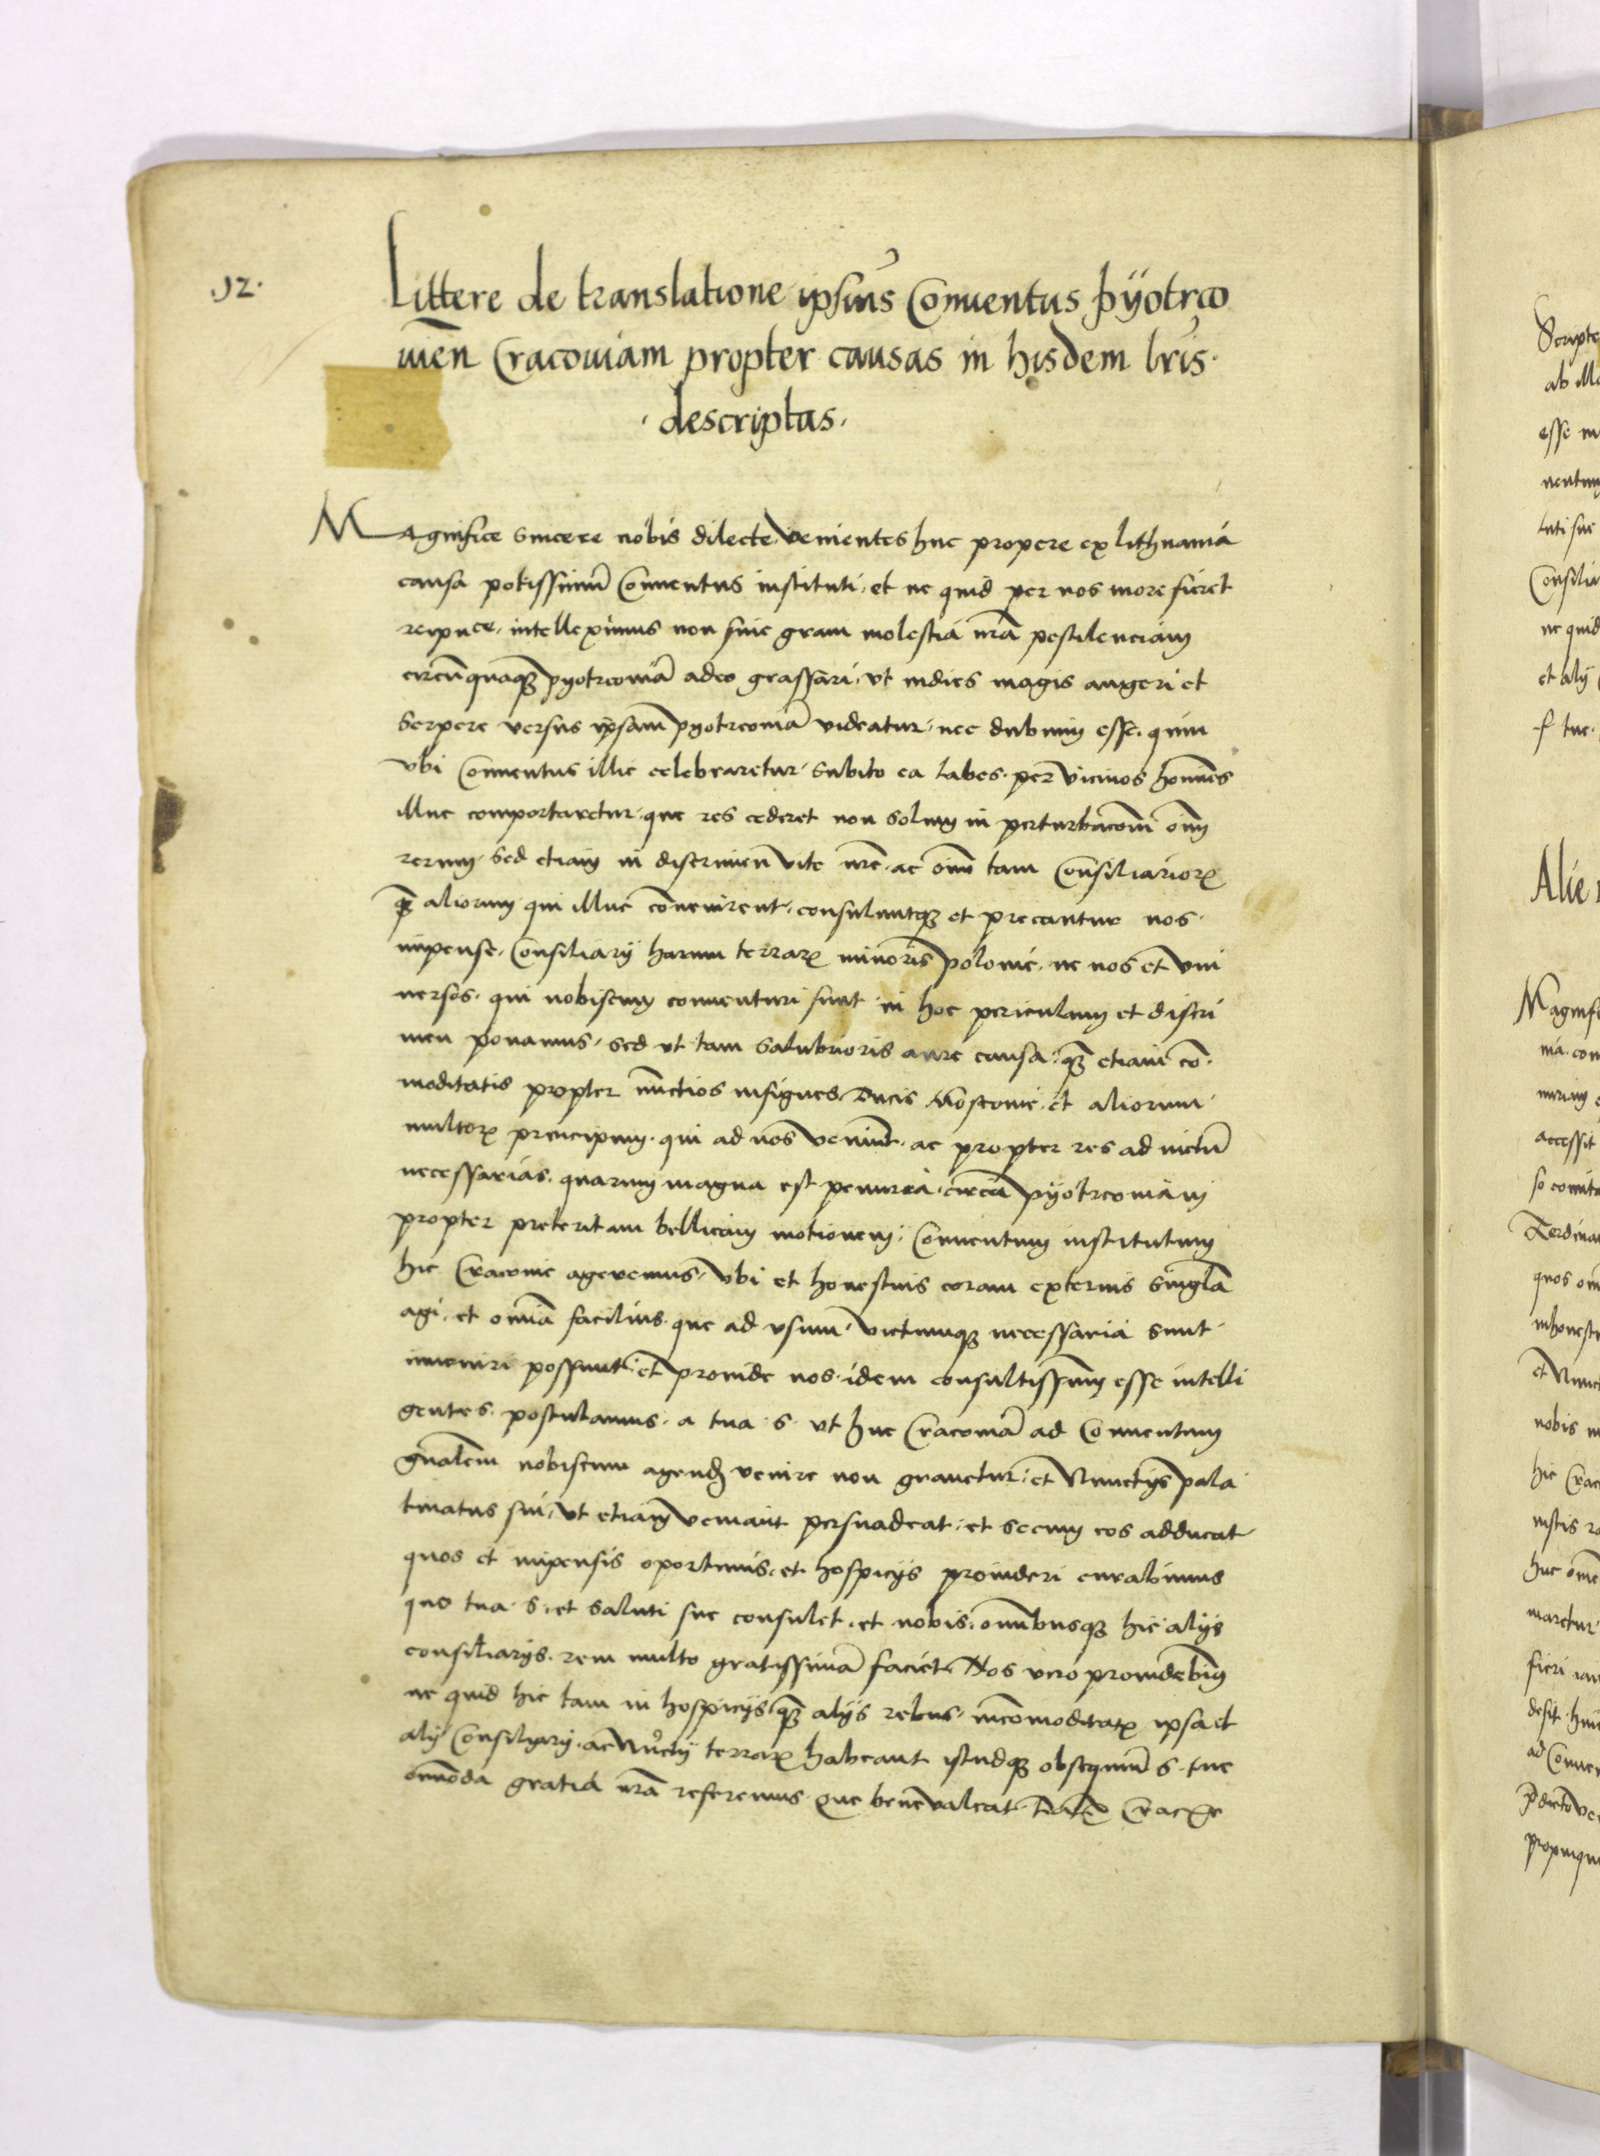 .12.
Littere de translatione ipsius Conuentus Pÿotrco
uien̄ Cracouiam propter causas in hisdem lr̄is.
. descriptas.
Magnifice sincere nobis dilecte venientes huc propere ex lithuania
causa potissimū Conuentus instituti. et ne quid per nos more fieret
reipu̅ce. intelleximus non sine graui molestia nr̄a pestilenciam
circūquaq₃ pyotrcouiā adeo grassari. vt indies magis augeri et
Serpere versus ip̄sam pyotrcouiā videatur. nec dubium esse. quin
vbi Conuentus illic celebraretur. Subito ea labes. per vicinos hoīnes
illuc comportaretur. que res cederet non Solum in perturbacōem om̄
rerum. Sed etiam in discrimen vite nr̄e. ac om̄ tam Consiliarioꝝ
q̄₃ aliorum qui illuc cōuenirent. consuluntq₃ et precantur nos.
impense. Consiliarij harum terraꝝ minoris polonie. ne nos et vni
uersos. qui nobiscum conuenturi sunt in hoc periculum et discri
men ponamus. Sed vt tam Salubrioris aure causa. q₃ etiam cō.
moditatis propter nūctios insignes. Ducis Moscouie. et aliorum
multoꝝ principum. qui ad nos veniūt. ac propter res ad victū
necessarias. quarum magna est penuria. circa pÿotrcouiam
propter preteritam bellicam motionem. Conuentum institutum
hic Cracouie ageremus. vbi et honestius coram externis singl̄a
agi. et om̄ia facilius. que ad vsum. victumq₃ necessaria sunt.
inueniri possunt. et proinde nos. idem consultissimū esse intelli
gentes. postulamus. a tua. S. vt huc Cracouiā ad Conuentum
gn̄alem nobiscum agend₃ venire non grauetur. et Nunctijs pala
tinatus sui. vt etiam veniant persuadeat. et secum eos adducat
quos et impensis oportunis. et hospicijs prouideri curabimus
quo tua. S. et Saluti sue consulet. et nobis. om̄ibusq₃ hic alijs
consiliarijs. rem multo gratissimā faciet. Nos vero prouidebim̄
ne quid hic tam in hospicijs q₃ alijs rebus. incōmoditatꝝ ipsa et
alij Consilyarij. ac Nuctij terraꝝ habeant istudq₃ obsequiū S. tue
om̄oda gratia nr̄a referemus. Que bene valeat. Datꝝ Crac̄e